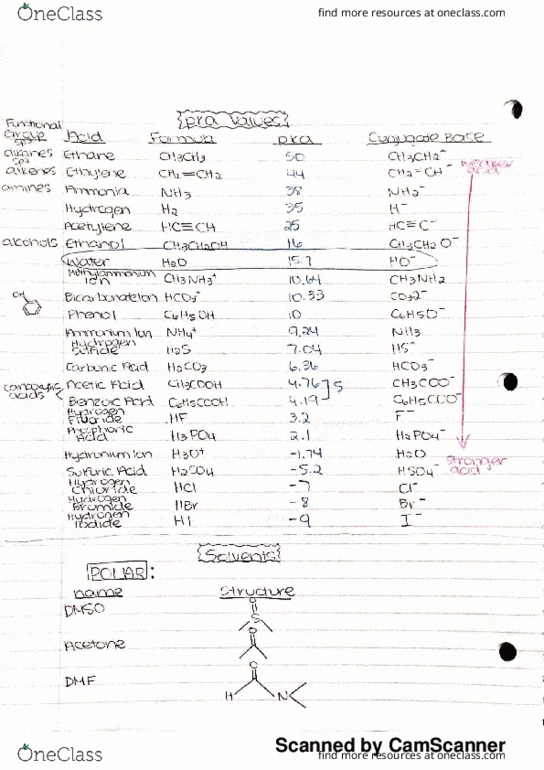 OneClass
find more resources at oneclass.com
pka values
Functional Group Acid Formula pka Conjugate Base
sp3
alkanes Ethane CH3CH3 50 CH3CH2⁻ weaker acid
sp2
alkenes Ethylene CH2=CH2 44 CH2=CH⁻
amines Ammonia NH3 38 NH2⁻
Hydrogen H2 35 H⁻
Acetylene HC≡CH 25 HC≡C⁻
alcohols Ethanol CH3CH2OH 16 CH3CH2O⁻
Water H2O 15.7 HO⁻
Methylammonium Ion CH3NH3⁺ 10.64 CH3NH2
OH
Bicarbonate Ion HCO3⁻ 10.33 CO3²⁻
Phenol C6H5OH 10 C6H5O⁻
Ammonium Ion NH4⁺ 9.24 NH3
Hydrogen Sulfide H2S 7.04 HS⁻
Carbonic Acid H2CO3 6.36 HCO3⁻
carboxylic acids Acetic Acid CH3COOH 4.76 ] 5 CH3COO⁻
Benzoic Acid C6H5COOH 4.19 C6H5COO⁻
Hydrogen Fluoride HF 3.2 F⁻
Phosphoric Acid H3PO4 2.1 H2PO4⁻
Hydronium Ion H3O⁺ -1.74 H2O
Sulfuric Acid H2SO4 -5.2 HSO4⁻ stronger acid
Hydrogen Chloride HCl -7 Cl⁻
Hydrogen Bromide HBr -8 Br⁻
Hydrogen Iodide HI -9 I⁻
Solvents
POLAR:
name Structure
DMSO
O
S
Acetone
O
DMF
O
H N
Scanned by CamScanner
OneClass
find more resources at oneclass.com